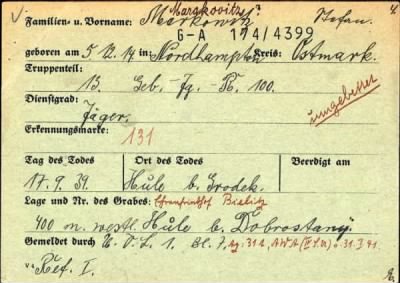 Margkovits?
Familien- u. Vorname: Markowitz Stefan. 4.
G-A 174/4399
geboren am 5.12.14 in: Nordhampton Kreis: Ostmark.
Truppenteil:
13. Geb.-Jg.-R. 100.
Dienstgrad: umgebettet
Jäger.
Erkennungsmarke: 131
Tag des Todes Ort des Todes Beerdigt am
17.9.39. Hule b. Grodek.
Lage und Nr. des Grabes: Ehrenfriedhof Bielitz
400 m. westl. Hule b. Dobrostany.
Gemeldet durch N.V.L. 1. Bl. 7, 31.3.41.
Ref. I.